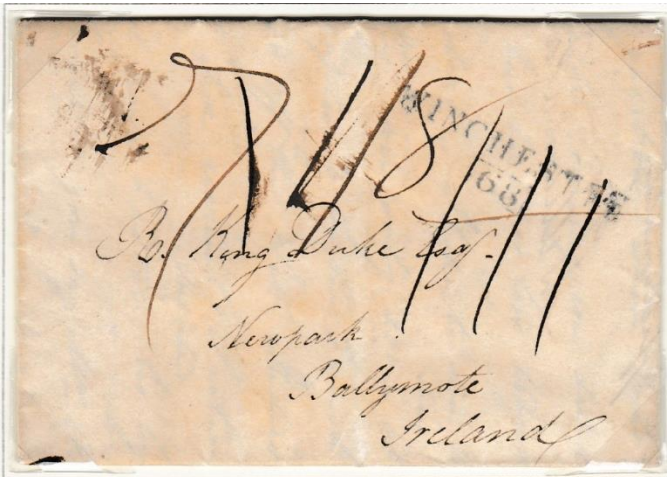 WINCHESTER
68
R. King Duke Esq.
Newpark
Ballymote
Ireland